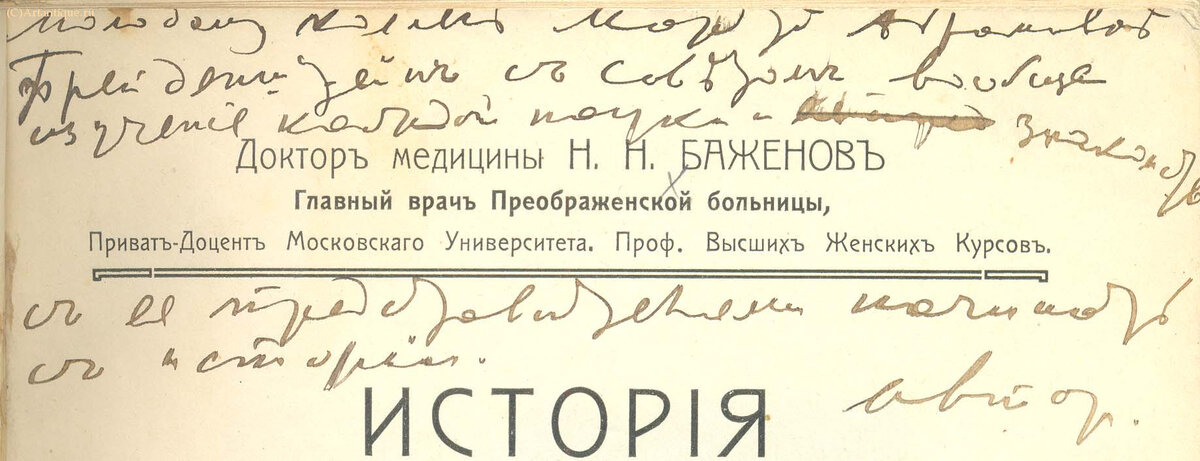 (C)Artantique.ru
Молодому коллеге Марку Абрамовичу
Фрейденштейнъ съ совѣтомъ вообще
изученіе каждой науки и знакомство
Докторъ медицины Н. Н. БАЖЕНОВЪ
Главный врачъ Преображенской больницы,
Приватъ-Доцентъ Московскаго Университета. Проф. Высшихъ Женскихъ Курсовъ.
съ ее представителями начинать
съ исторіи.
авторъ.
ИСТОРІЯ